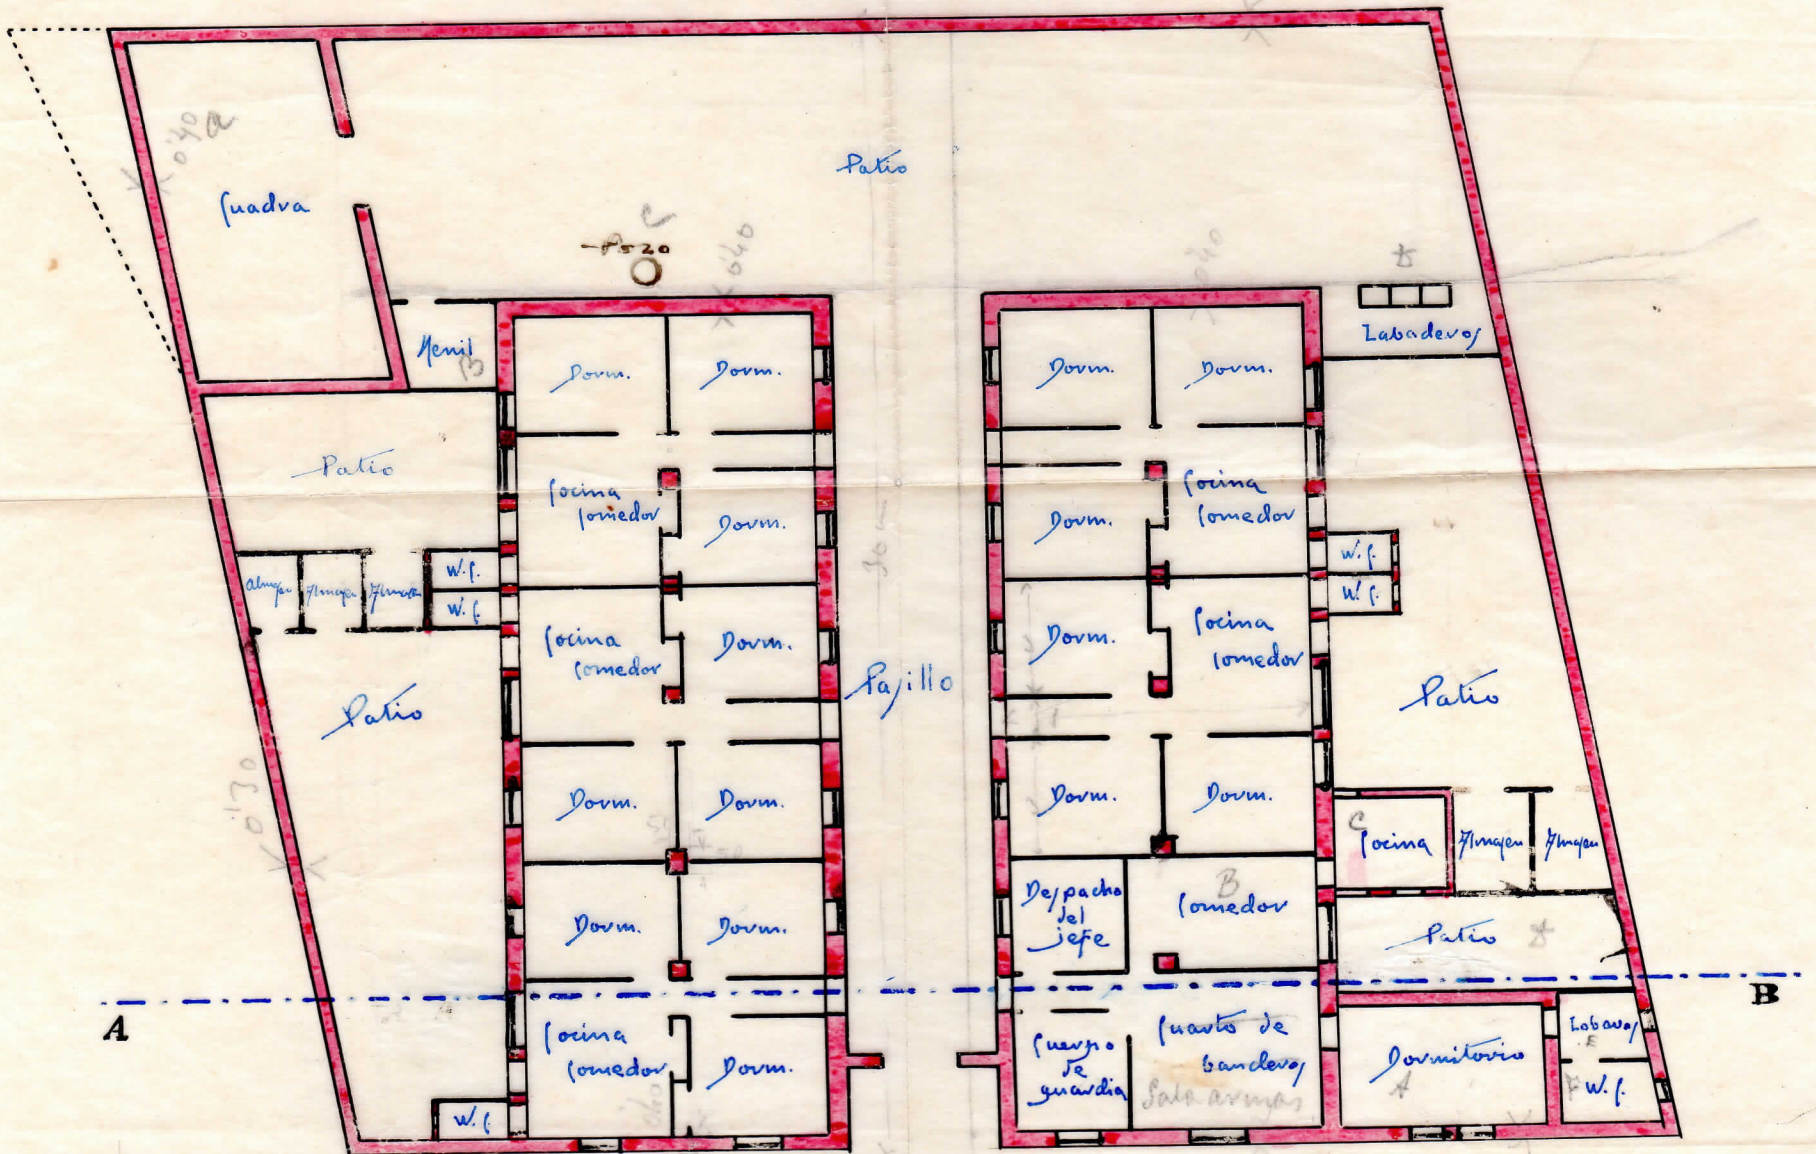 Patio
Cuadra
0'40
a
Pozo
C
0'40
0'40
D
Labaderos
Henil
B
Dorm.
Dorm.
Dorm.
Dorm.
Patio
Cocina
Comedor
Dorm.
Dorm.
Cocina
Comedor
W.C.
W.C.
Almajen
Almajen
Almajen
W.C.
W.C.
Cocina
Comedor
Dorm.
Pasillo
Dorm.
Cocina
Comedor
Patio
Patio
0'30
Dorm.
Dorm.
Dorm.
Dorm.
C
Cocina
Almajen
Almajen
Dorm.
Dorm.
Despacho
del
jefe
B
Comedor
Patio
D
A
B
Cocina
Comedor
Dorm.
Cuerpo
de
guardia
Cuarto de
banderas
Sala armas
Dormitorio
A
Lobavos
E
F
W.C.
W.C.
0'40